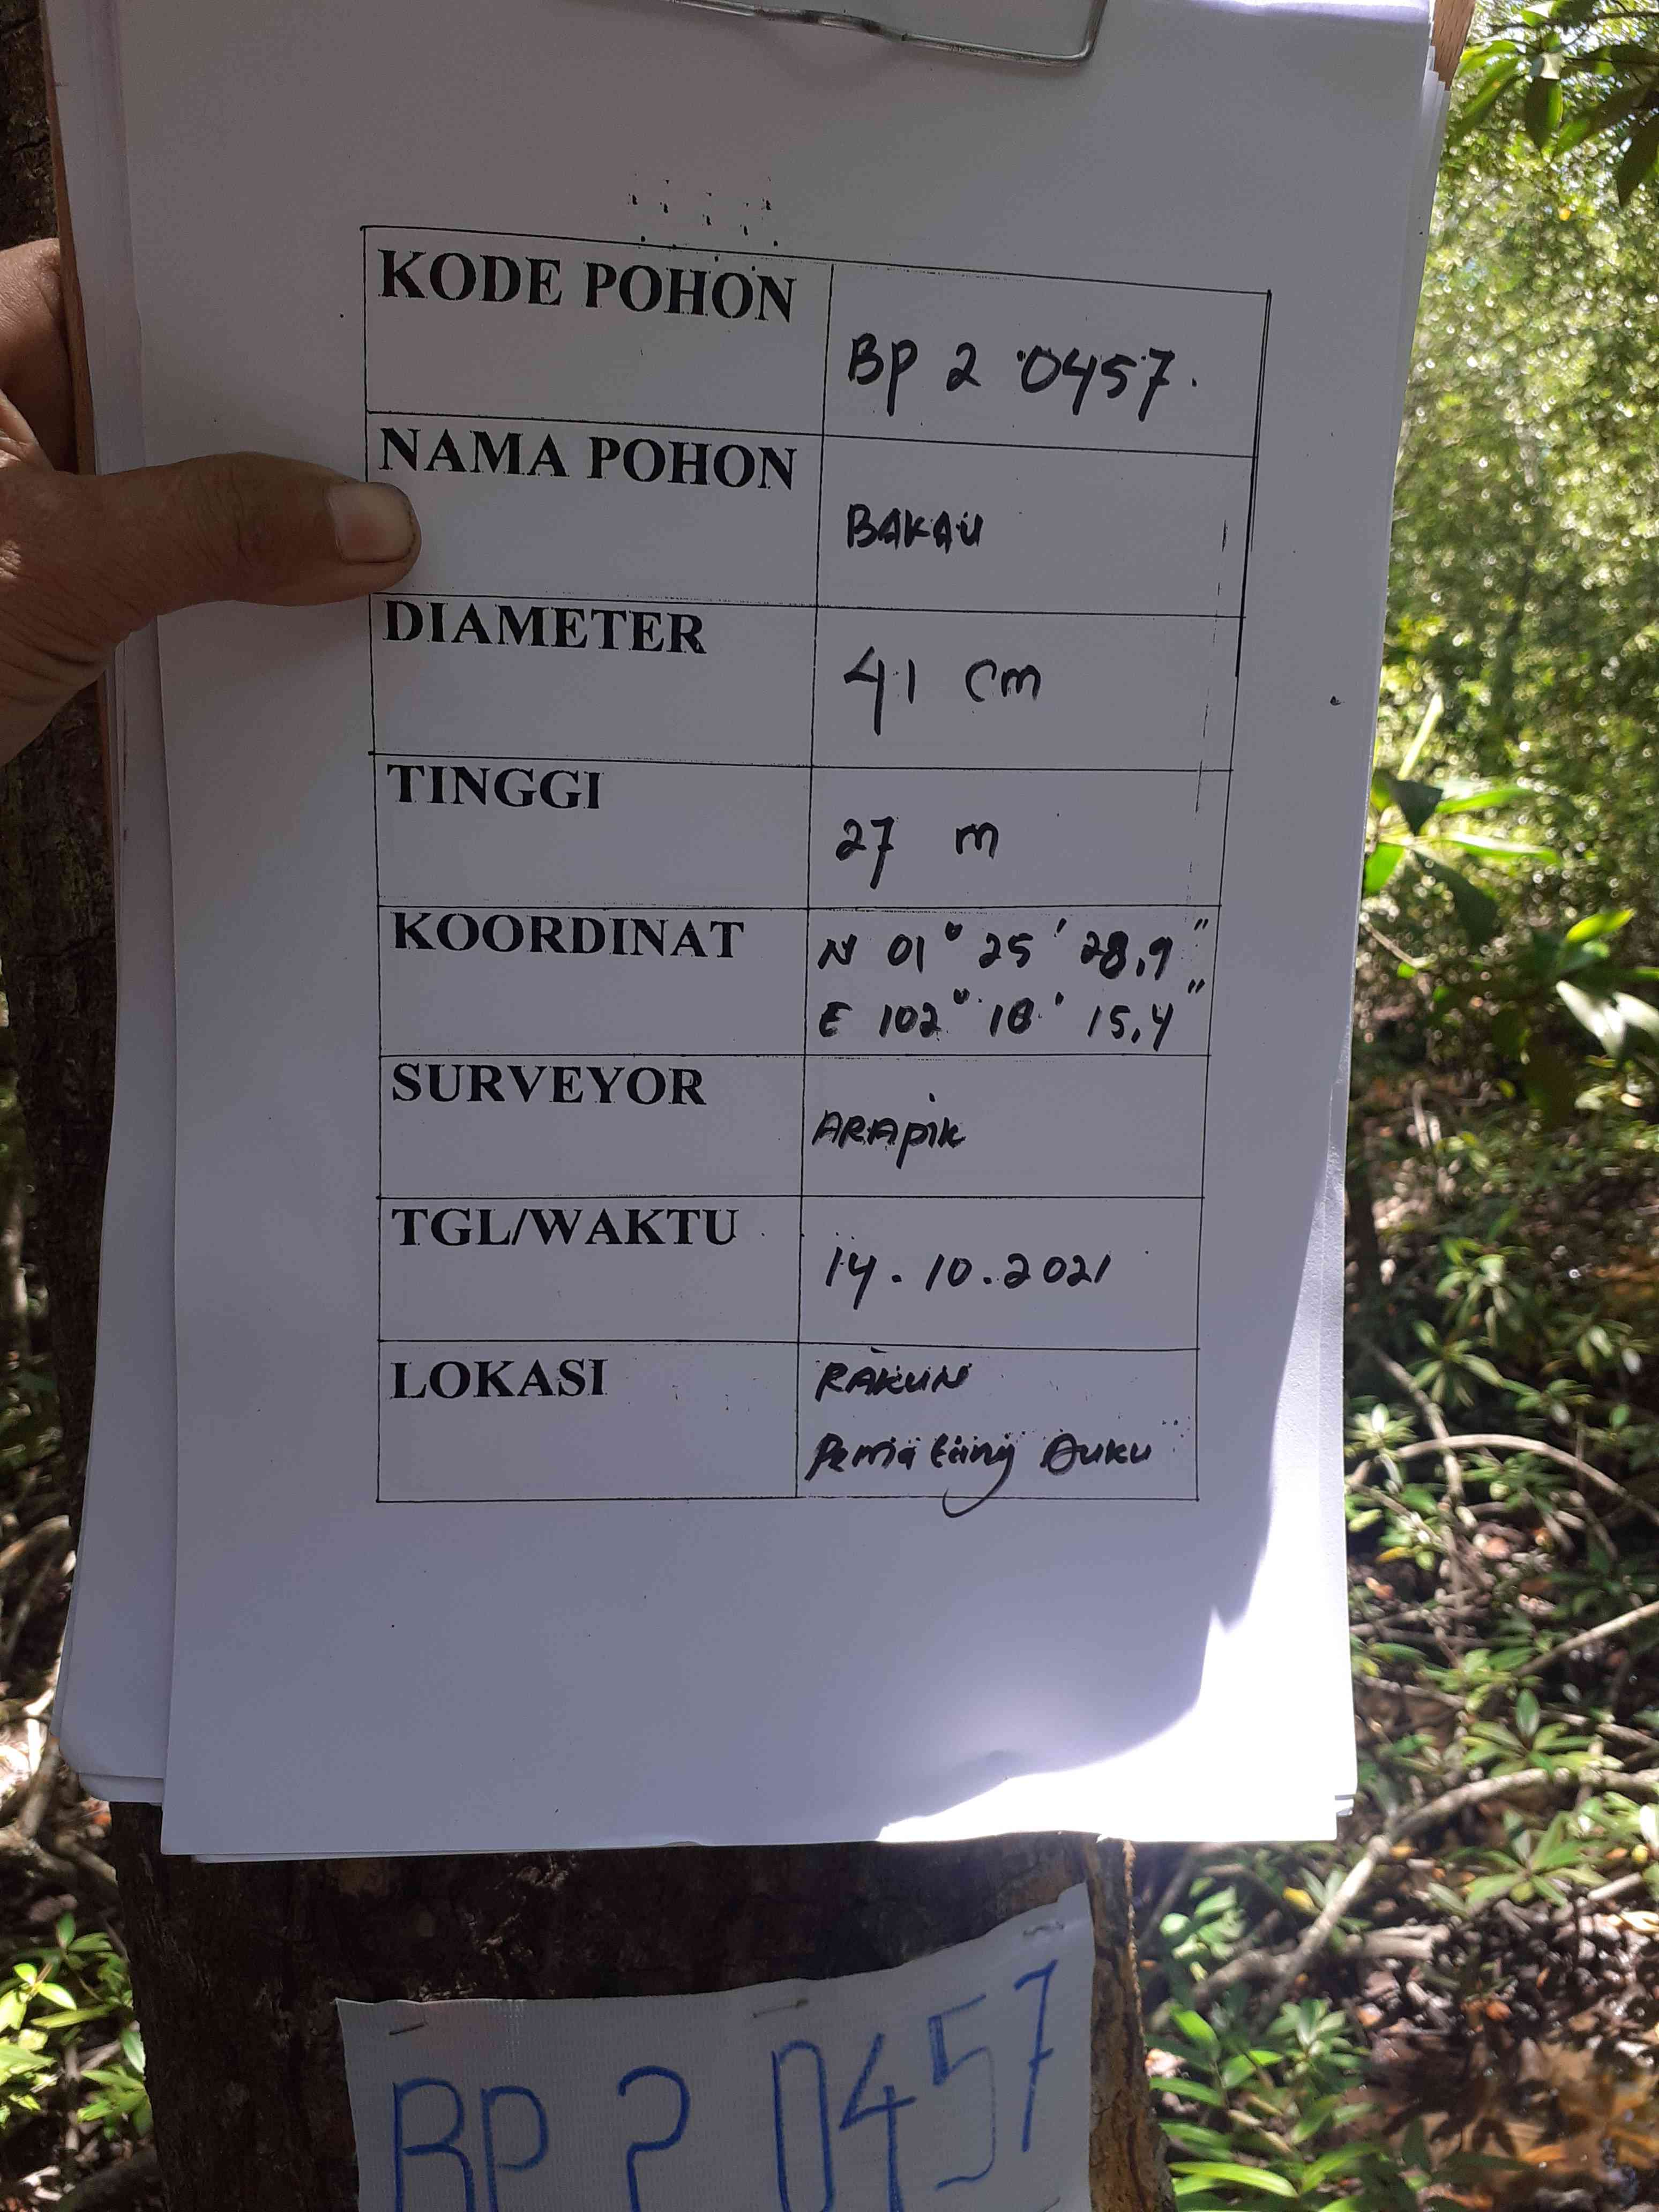 KODE POHON
BP 2 0457.
NAMA POHON
BAKAU
DIAMETER
41 cm
TINGGI
27 m
KOORDINAT
N 01° 25' 28,9"
E 102° 10' 15,4"
SURVEYOR
ARAPIK
TGL/WAKTU
14.10.2021
LOKASI
RAKUN
Pematang Duku
BP 2 0457